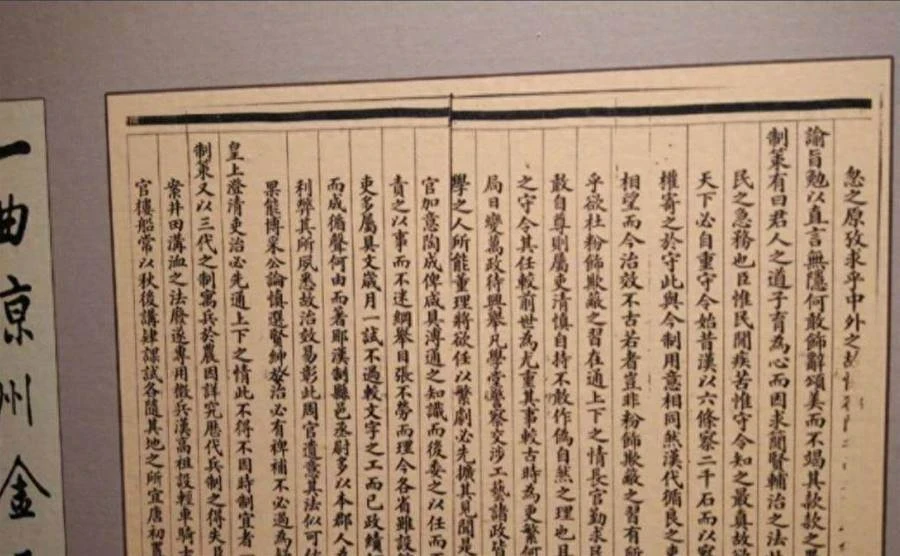 怱之原攷求乎中外之故
諭旨勉以直言無隱何敢飾辭頌美而不竭其款款之
制策有曰君人之道子育為心而因求簡賢輔治之法
民之急務也臣惟民間疾苦惟守令知之最真故
天下必自重守令始昔漢以六條察二千石而以
權寄之於守此與今制用意相同然漢代循良之
相望而今治效不古若者豈非粉飾欺敝之習有所
乎欲杜粉飾欺敝之習在通上下之情長官勤求民
敢自尊則屬吏清慎自持不敢作偽自然之理也且
之守令其任較前世為尤重其事較古時為更繁何
局日變萬政待興舉凡學堂警察交涉工藝諸政皆
學之人所能董理將欲任以繁劇必先擴其見聞是
官加意陶成俾咸具溥通之知識而後委之以任而
責之以事而不迷綱舉目張不勞而理今各省雖設
吏多屬具文歲月一試不過較文字之工而已政績
而成循聲何由而著耶漢制縣邑丞尉多以本郡人為
利弊其所夙悉故治效易彰此周官遺意其法似可
果能博采公論慎選賢紳營治必有裨補不必過為
皇上澄清吏治必先通上下之情此不得不因時制宜者
制策又以三代之制寓兵於農因詳究歷代兵制之得失
案井田溝洫之法廢遂專用徵兵漢高祖設輕車騎士
官樓船常以秋後講肄課試各隨其地之所宜唐初
一曲京州金